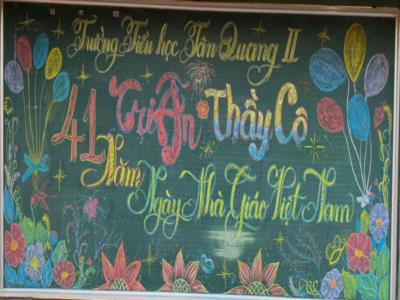 Trường Tiểu học Tân Quang II
Tri Ân Thầy Cô
41 Năm Ngày Nhà Giáo Việt Nam